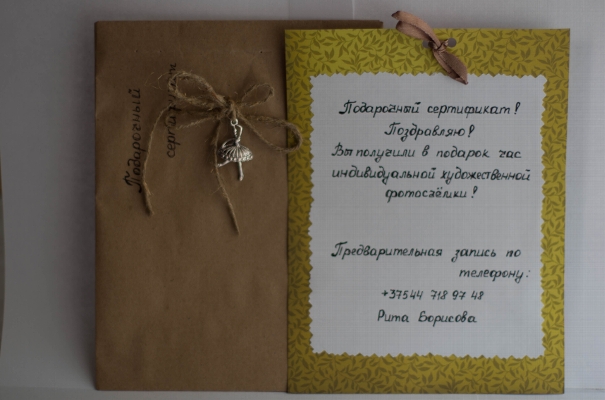 Подарочный
сертификат
Подарочный сертификат!
Поздравляю!
Вы получили в подарок час
индивидуальной художественной
фотосъёмки!
Предварительная запись по
телефону:
+37544 718 97 48
Рита Борисова